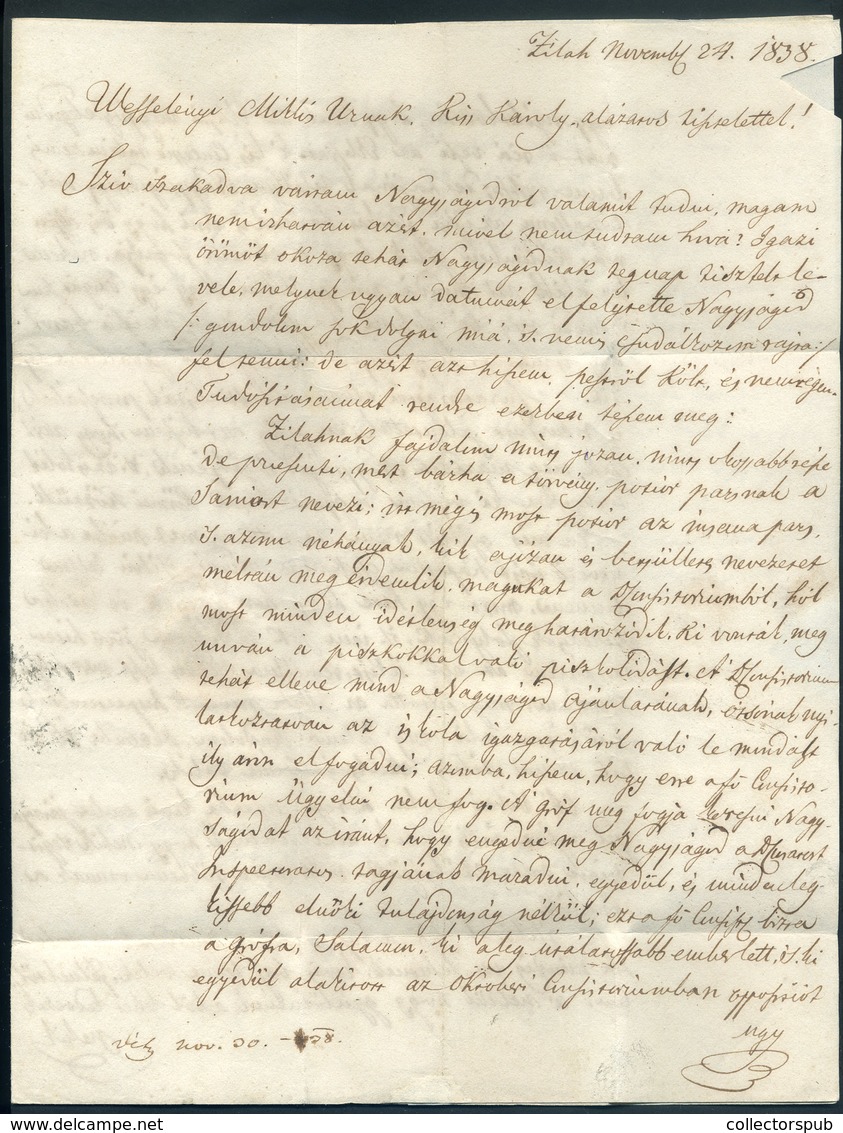 Zilah Novemb 24. 1838.
Wesselényi Miklós Urnak, Kiss Károly, alázatos tisztelettel!
Sziv szakadva vártam Nagyságodról valamit tudni, magam
nem irhatván azért, mivel nem tudtam hivá? Igazi
örömöt okoza tehát Nagyságodnak tegnap tisztelt le-
vele, melynek ugyan datumát elfelejtette Nagyságod
/: gondolom sok dolgai miá, s nem is csudálkozom rajta :/
fel tenni: de azért azt hiszem, Pestről költ, és nem régen.
Tudósitásaimat rendre ezekben teszem meg:
Zilahnak fájdalom nincs józan, nincs okosabb része
de praesenti, mert bárha a törvény potior parsnak a
Saniort nevezi; itt mégis most potior az insana pars,
s azon néhányak, kik a józan és becsülletes nevezetet
méltán meg érdemlik, magukat a Consistoriumból, hol
most minden idétlenség meghatározódik, ki vonták, meg
unván a piszkokkal való piszkolódást. A Consistorium
tehát ellene mind a Nagyságod ajánlásának,
az iskola igazgatásáról való le mondást
ily árin elfogadni; azomba, hiszem, hogy erre a fő Consisto-
rium ügyelni nem fog. A gróf meg fogja keresni Nagy-
ságodat az iránt, hogy engedne meg Nagyságod a
Inspectoratus tagjának maradni, egyedül, és minden leg-
kissebb elnöki tulajdonság nélkül; ezt a fő Consist bizta
a grófra, ki a leg utálatossabb ember lett, s ki
egyedül alakitott az Oktoberi Consistoriumban oppositiot
ugy
nov. 30. 838.
collectorspub